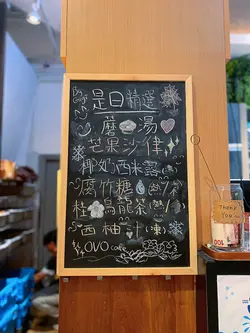 是日精選
蘑湯
芒果沙律
椰奶西米露
腐竹糖水(熱/
桂烏龍茶(熱/
西柚汁(凍)
OVO Cafe
Thank
You